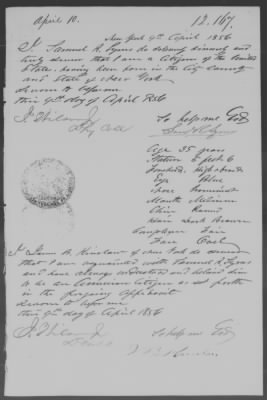 April 10.
12.167.
New York 9th April 1856
I, Samuel R. Lyons do solemnly sincerely and
truly swear that I am a Citizen of the United
States having been born in the City County
and State of New York
Sworn to before me
this 9th day of April 1856
So help me God
Age 35 years
Stature 5 feet 6
Forehead High & broad
Eye Blue
Nose Prominent
Mouth Medium
Chin Round
Hair Dark Brown
Complexion Fair
Face Oval
I, James of New York do swear
that I am acquainted with Samuel R. Lyons
and have always understood and believed him
to be an American Citizen as set forth
in the foregoing Affidavit
Sworn to before me
this 9th day of April 1856
So help me God